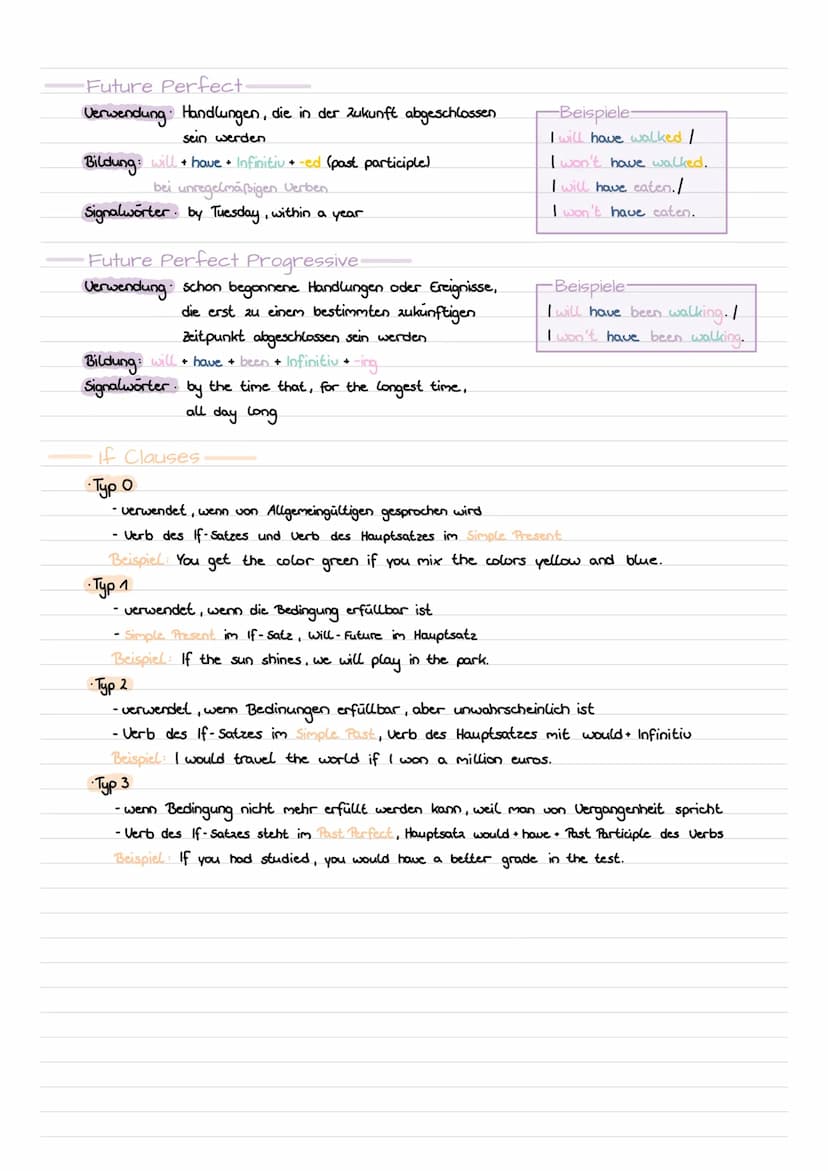 Future Perfect
Verwendung: Handlungen, die in der Zukunft abgeschlossen
sein werden
Bildung: will + have + Infinitiv + -ed (past participle)
bei unregelmäßigen Verben
Signalwörter: by Tuesday, within a year
Beispiele
I will have walked /
I won't have walked.
I will have eaten. /
I won't have eaten.
Future Perfect Progressive
Verwendung: schon begonnene Handlungen oder Ereignisse,
die erst zu einem bestimmten zukünftigen
Zeitpunkt abgeschlossen sein werden
Bildung: will + have + been + Infinitiv + -ing
Signalwörter: by the time that, for the longest time,
all day long
Beispiele
I will have been walking. /
I won't have been walking.
If Clauses
· Typ 0
- verwendet, wenn von Allgemeingültigen gesprochen wird
- Verb des If-Satzes und Verb des Hauptsatzes im Simple Present
Beispiel: You get the color green if you mix the colors yellow and blue.
· Typ 1
- verwendet, wenn die Bedingung erfüllbar ist
- Simple Present im If-Satz, Will-Future im Hauptsatz
Beispiel: If the sun shines, we will play in the park.
· Typ 2
- verwendet, wenn Bedinungen erfüllbar, aber unwahrscheinlich ist
- Verb des If-Satzes im Simple Past, Verb des Hauptsatzes mit would + Infinitiv
Beispiel: I would travel the world if I won a million euros.
· Typ 3
- wenn Bedingung nicht mehr erfüllt werden kann, weil man von Vergangenheit spricht
- Verb des If-Satzes steht im Past Perfect, Hauptsatz would + have + Past Participle des Verbs
Beispiel: If you had studied, you would have a better grade in the test.